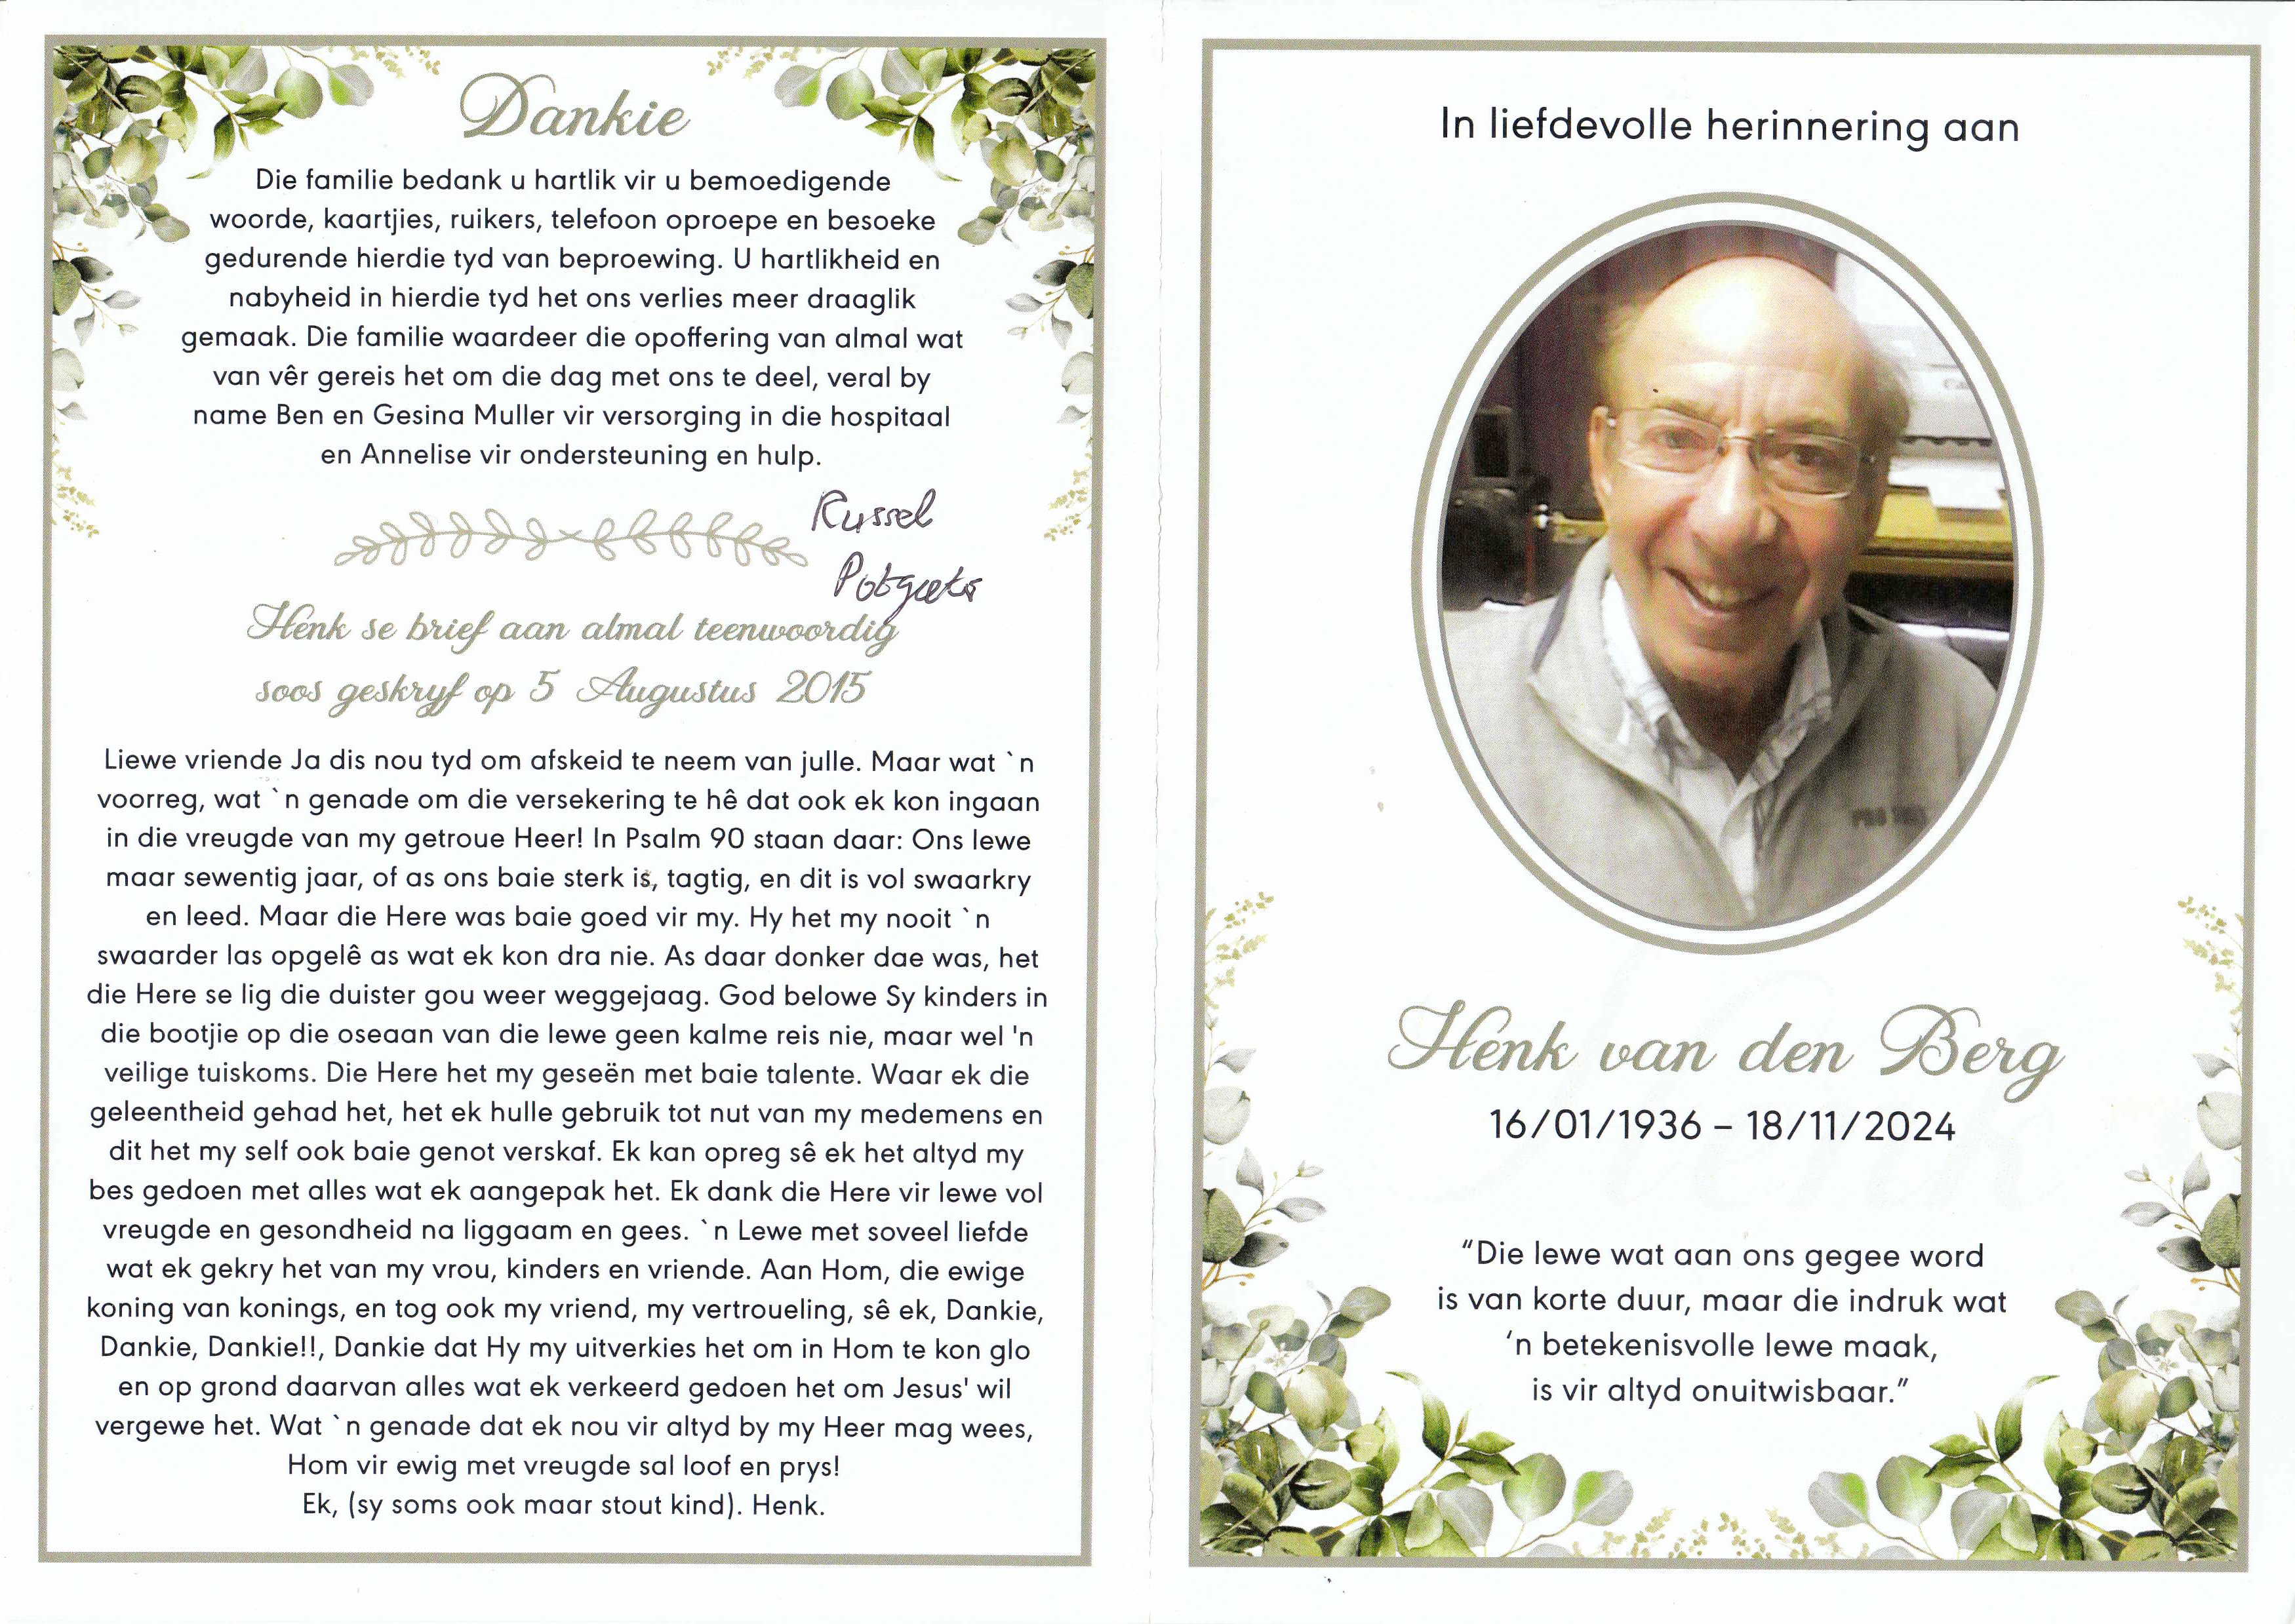 Dankie
Die familie bedank u hartlik vir u bemoedigende
woorde, kaartjies, ruikers, telefoon oproepe en besoeke
gedurende hierdie tyd van beproewing. U hartlikheid en
nabyheid in hierdie tyd het ons verlies meer draaglik
gemaak. Die familie waardeer die opoffering van almal wat
van vêr gereis het om die dag met ons te deel, veral by
name Ben en Gesina Muller vir versorging in die hospitaal
en Annelise vir ondersteuning en hulp.
Russel
Henk se brief aan almal teenwoordig
soos geskryf op 5 Augustus 2015
Liewe vriende Ja dis nou tyd om afskeid te neem van julle. Maar wat `n
voorreg, wat `n genade om die versekering te hê dat ook ek kon ingaan
in die vreugde van my getroue Heer! In Psalm 90 staan daar: Ons lewe
maar sewentig jaar, of as ons baie sterk is, tagtig, en dit is vol swaarkry
en leed. Maar die Here was baie goed vir my. Hy het my nooit `n
swaarder las opgelê as wat ek kon dra nie. As daar donker dae was, het
die Here se lig die duister gou weer weggejaag. God belowe Sy kinders in
die bootjie op die oseaan van die lewe geen kalme reis nie, maar wel 'n
veilige tuiskoms. Die Here het my geseën met baie talente. Waar ek die
geleentheid gehad het, het ek hulle gebruik tot nut van my medemens en
dit het my self ook baie genot verskaf. Ek kan opreg sê ek het altyd my
bes gedoen met alles wat ek aangepak het. Ek dank die Here vir lewe vol
vreugde en gesondheid na liggaam en gees. `n Lewe met soveel liefde
wat ek gekry het van my vrou, kinders en vriende. Aan Hom, die ewige
koning van konings, en tog ook my vriend, my vertroueling, sê ek, Dankie,
Dankie, Dankie!!, Dankie dat Hy my uitverkies het om in Hom te kon glo
en op grond daarvan alles wat ek verkeerd gedoen het om Jesus' wil
vergewe het. Wat `n genade dat ek nou vir altyd by my Heer mag wees,
Hom vir ewig met vreugde sal loof en prys!
Ek, (sy soms ook maar stout kind). Henk.
In liefdevolle herinnering aan
Henk van den Berg
16/01/1936 – 18/11/2024
“Die lewe wat aan ons gegee word
is van korte duur, maar die indruk wat
‘n betekenisvolle lewe maak,
is vir altyd onuitwisbaar.”